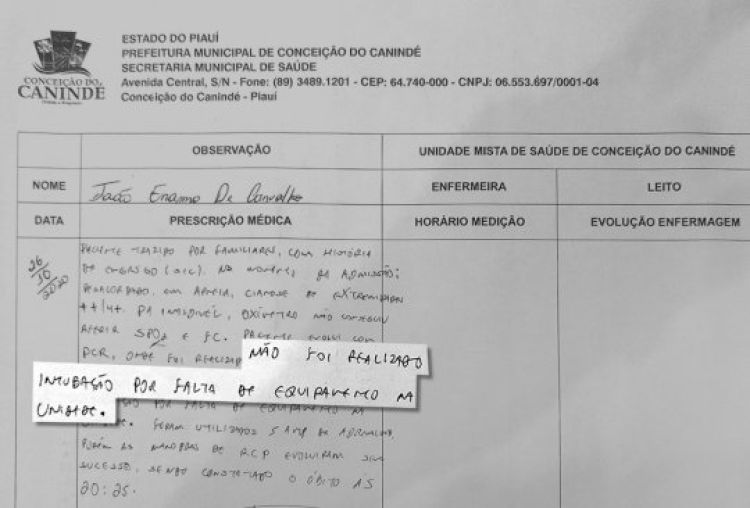 ESTADO DO PIAUÍ
PREFEITURA MUNICIPAL DE CONCEIÇÃO DO CANINDÉ
SECRETARIA MUNICIPAL DE SAÚDE
Avenida Central, S/N - Fone: (89) 3489.1201 - CEP: 64.740-000 - CNPJ: 06.553.697/0001-04
Conceição do Canindé - Piauí
CONCEIÇÃO DO
CANINDÉ
OBSERVAÇÃO
UNIDADE MISTA DE SAÚDE DE CONCEIÇÃO DO CANINDÉ
NOME
João De Carvalho
ENFERMEIRA
LEITO
DATA
PRESCRIÇÃO MÉDICA
HORÁRIO MEDIÇÃO
EVOLUÇÃO ENFERMAGEM
26/10/2020
PACIENTE TRAZIDO POR FAMILIARES, COM HISTÓRIA
DE ENGASGO (SIC). NO MOMENTO DA ADMISSÃO:
DESACORDADO, EM APNEIA, CIANOSE DE EXTREMIDADES
++/4+. PA INAUDÍVEL, OXÍMETRO NÃO CONSEGUIU
AFERIR SPO2 E FC. PACIENTE EVOLUI COM
PCR, ONDE FOI
NÃO FOI REALIZADO
INTUBAÇÃO POR FALTA DE EQUIPAMENTO NA
UNIDADE.
POR FALTA DE EQUIPAMENTO NA
FORAM UTILIZADOS 5 AMP DE ADRENALINA,
PORÉM AS MANOBRAS DE RCP EVOLUIRAM SEM
SUCESSO, SENDO CONSTATADO O ÓBITO ÀS
20:25.